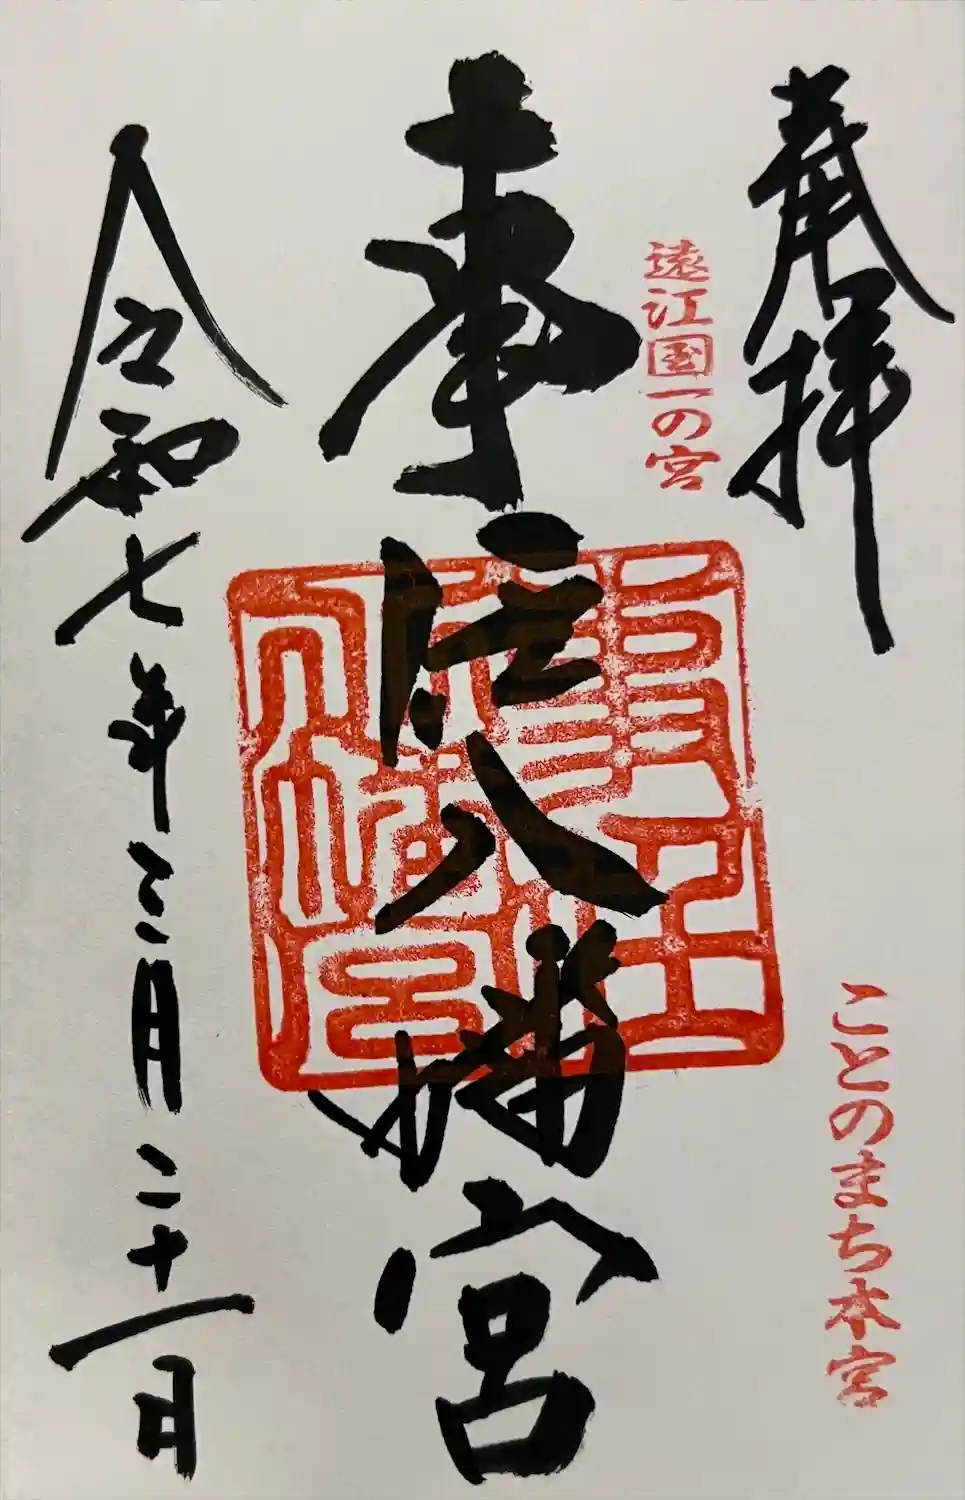 奉拝
遠江国一の宮
ことのまち本宮
事任八幡宮
事任
八幡宮
令和七年三月二十一日